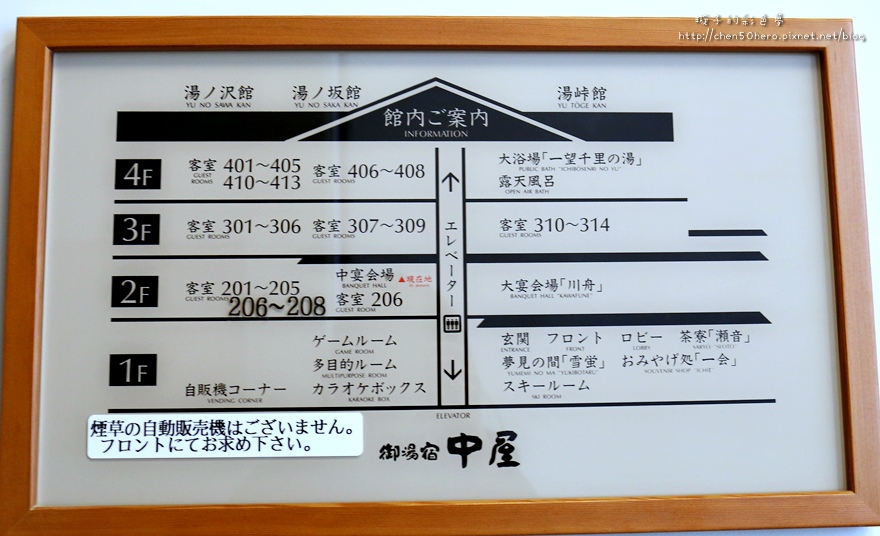 璇子的彩色夢
http://chen50hero.pixnet.net/blog
湯ノ沢館 湯ノ坂館 湯峠館
YU NO SAWA KAN YU NO SAKA KAN YU TOGE KAN
館内ご案内
INFORMATION
4F 客室 401〜405 客室 406〜408 大浴場「一望千里の湯」
GUEST ROOMS GUEST ROOMS PUBLIC BATH "ICHIBOSENRI NO YU"
410〜413 露天風呂
OPEN AIR BATH
3F 客室 301〜306 客室 307〜309 客室 310〜314
GUEST ROOMS GUEST ROOMS GUEST ROOMS
エレベーター
2F 客室 201〜205 中宴会場 ▲現在地 大宴会場「川舟」
GUEST ROOMS BANQUET HALL BANQUET HALL "KAWAFUNE"
206〜208 客室 206
GUEST ROOM
1F ゲームルーム 玄関 フロント ロビー 茶寮「瀬音」
GAME ROOM ENTRANCE FRONT LOBBY SARYO "SEOTO"
多目的ルーム 夢見の間「雪蛍」 おみやげ処「一会」
MULTIPURPOSE ROOM YUMEMI NO MA "YUKIBOTARU" SOUVENIR SHOP "ICHIE"
自販機コーナー カラオケボックス スキールーム
VENDING CORNER KARAOKE BOX SKI ROOM
ELEVATOR
煙草の自動販売機はございません。
フロントにてお求め下さい。
御湯宿 中屋